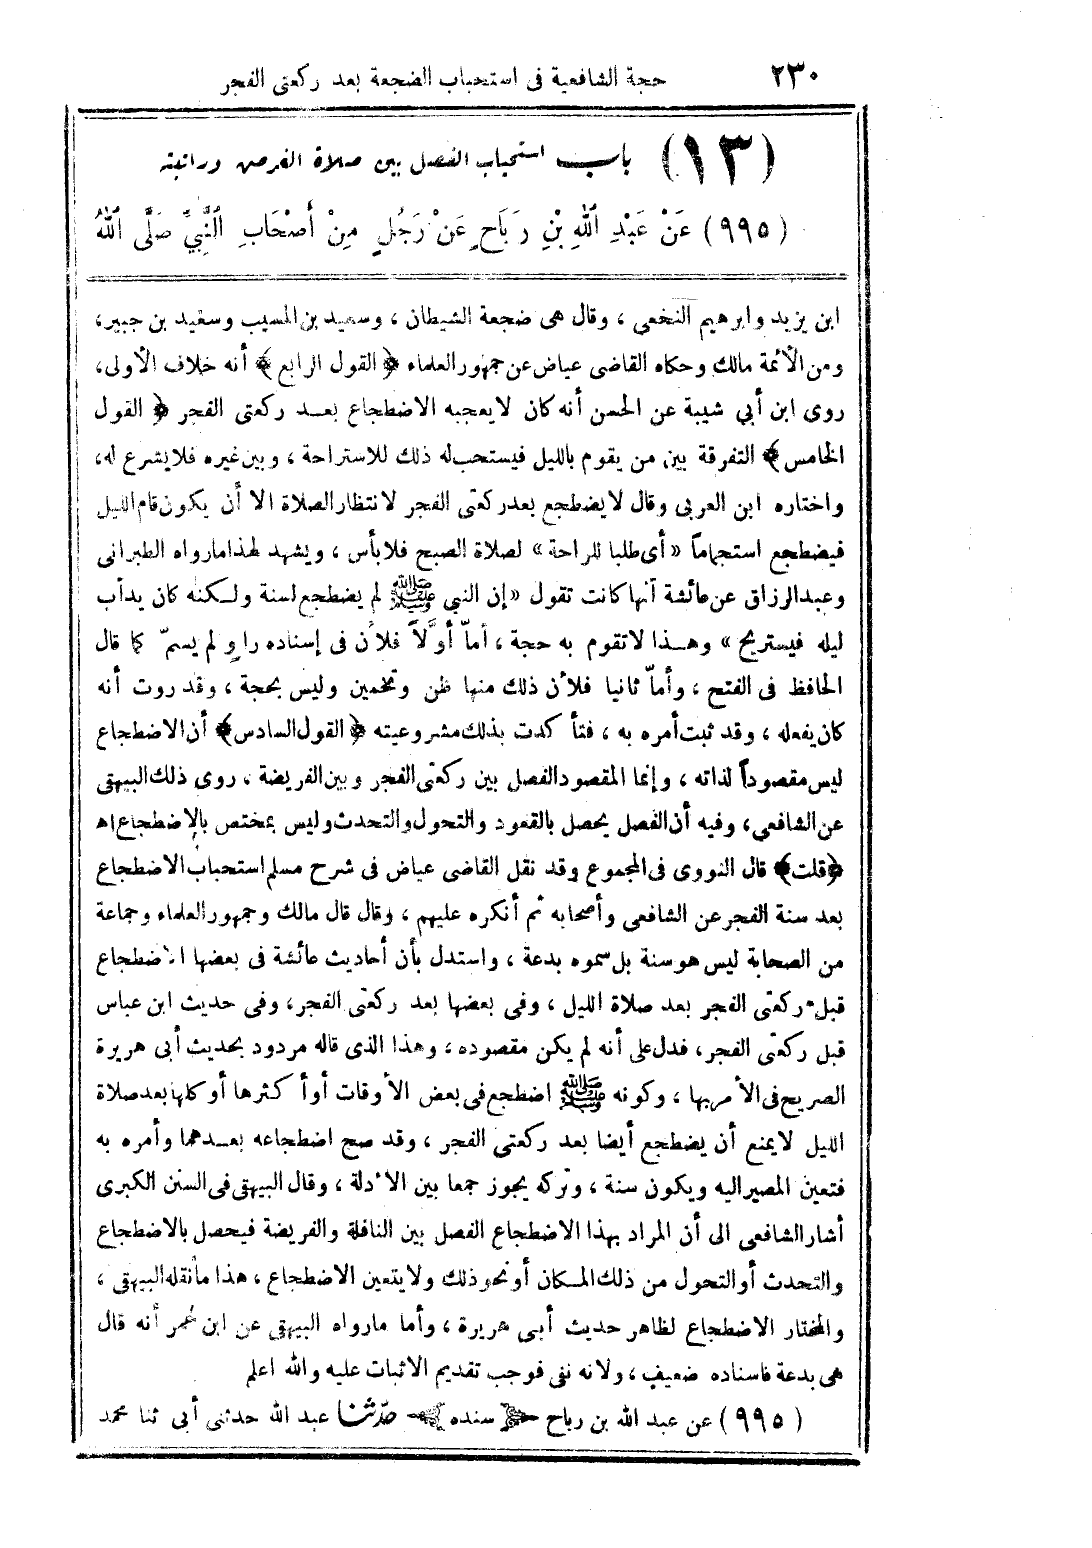 ٢٣٠ حجة الشافعية فى استحباب الضجعة بعد ركعتى الفجر
(١٣) باب استحباب الفصل بين صلاة الفرض وراتبته
(٩٩٥) عَنْ عَبْدِ اللهِ بْنِ رَبَاحٍ عَنْ رَجُلٍ مِنْ أَصْحَابِ النَّبِيِّ صَلَّى اللهُ
ابن يزيد وابرهيم النخعى ، وقال هى ضجعة الشيطان ، وسعيد بن المسيب وسعيد بن جبير،
ومن الأئمة مالك وحكاه القاضى عياض عن جمهور العلماء ﴿القول الرابع﴾ أنه خلاف الأولى،
روى ابن أبي شيبة عن الحسن أنه كان لا يعجبه الاضطجاع بعد ركعتى الفجر ﴿القول
الخامس﴾ التفرقة بين من يقوم بالليل فيستحب له ذلك للاستراحة ، وبين غيره فلا يشرع له،
واختاره ابن العربى وقال لا يضطجع بعد ركعتى الفجر لانتظار الصلاة الا أن يكون قام الليل
فيضطجع استجماماً «أى طلبا للراحة» لصلاة الصبح فلا بأس ، ويشهد لهذا مارواه الطبرانى
وعبد الرزاق عن عائشة أنها كانت تقول «إن النبي ﷺ لم يضطجع لسنة ولكنه كان يدأب
ليله فيستريح» وهذا لا تقوم به حجة ، أمّا أوَّلاً فلأن فى إسناده راوٍ لم يسمّ كما قال
الحافظ فى الفتح ، وأمّا ثانيا فلأن ذلك منها ظن وتخمين وليس بحجة ، وقد روت أنه
كان يفعله ، وقد ثبت أمره به ، فتأكدت بذلك مشروعيته ﴿القول السادس﴾ أن الاضطجاع
ليس مقصوداً لذاته ، وإنما المقصود الفصل بين ركعتى الفجر وبين الفريضة ، روى ذلك البيهقى
عن الشافعى، وفيه أن الفصل يحصل بالقعود والتحول والتحدث وليس بمختص بالإضطجاع اهـ
﴿قلت﴾ قال النووى فى المجموع وقد نقل القاضى عياض فى شرح مسلم استحباب الاضطجاع
بعد سنة الفجر عن الشافعى وأصحابه ثم أنكره عليهم ، وقال قال مالك وجمهور العلماء وجماعة
من الصحابة ليس هو سنة بل سموه بدعة ، واستدل بأن أحاديث عائشة فى بعضها الاضطجاع
قبل ركعتى الفجر بعد صلاة الليل ، وفى بعضها بعد ركعتى الفجر، وفى حديث ابن عباس
قبل ركعتى الفجر، فدل على أنه لم يكن مقصوده ، وهذا الذى قاله مردود بحديث أبى هريرة
الصريح فى الأمر بها ، وكونه ﷺ اضطجع فى بعض الأوقات أو أكثرها أو كلها بعد صلاة
الليل لا يمنع أن يضطجع أيضا بعد ركعتى الفجر ، وقد صح اضطجاعه بعدهما وأمره به
فتعين المصير اليه ويكون سنة ، وتركه يجوز جمعا بين الأدلة ، وقال البيهقى فى السنن الكبرى
أشار الشافعى الى أن المراد بهذا الاضطجاع الفصل بين النافلة والفريضة فيحصل بالاضطجاع
والتحدث أو التحول من ذلك المكان أو نحو ذلك ولا يتعين الاضطجاع ، هذا مانقله البيهقى ،
والمختار الاضطجاع لظاهر حديث أبى هريرة ، وأما مارواه البيهقى عن ابن عُمر أنه قال
هى بدعة فاسناده ضعيف ، ولانه نفى فوجب تقديم الاثبات عليه والله اعلم
(٩٩٥) عن عبد الله بن رباح ﴿سنده﴾ حدّثنا عبد الله حدثنى أبى ثنا محمد